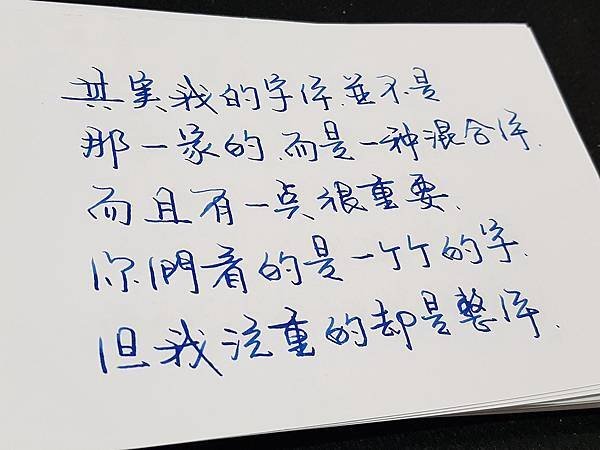 其实我的字体並不是
那一家的.而是一种混合体.
而且有一点很重要.
你們看的是一个个的字.
但我注重的却是整体.